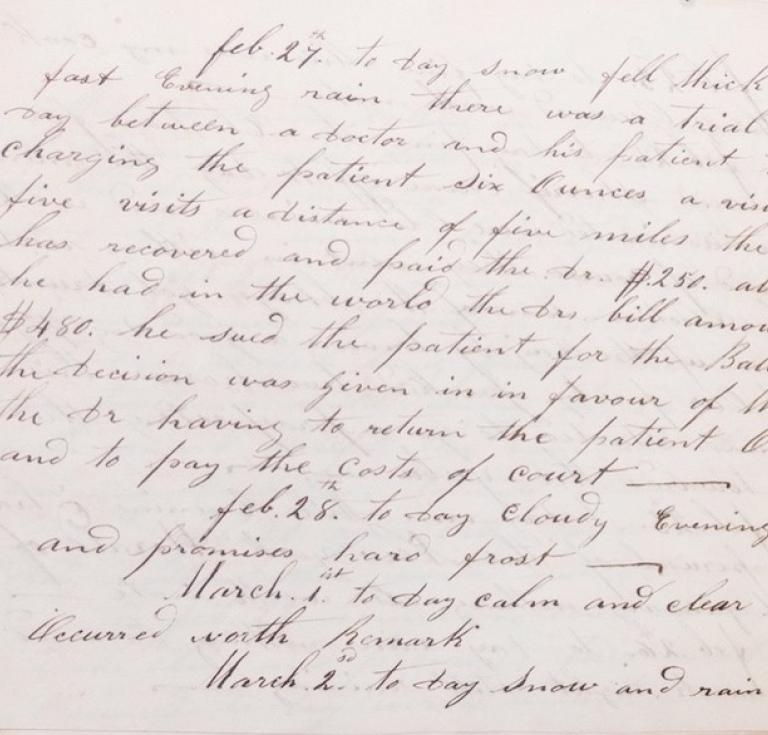 feb. 27th. to day snow fell thick
fast Evening rain there was a trial
day between a doctor and his patient
charging the patient six Ounces a visi
five visits a distance of five miles the
has recovered and paid the dr. $.250. al
he had in the world the drs bill amou
$480. he sued the patient for the Bal
the decision was given in in favour of th
the dr having to return the patient
and to pay the costs of court —
feb. 28.th to day cloudy Evening
and promises hard frost —
March. 1.st to day calm and clear
Occurred worth Remark
March. 2.nd to day snow and rain